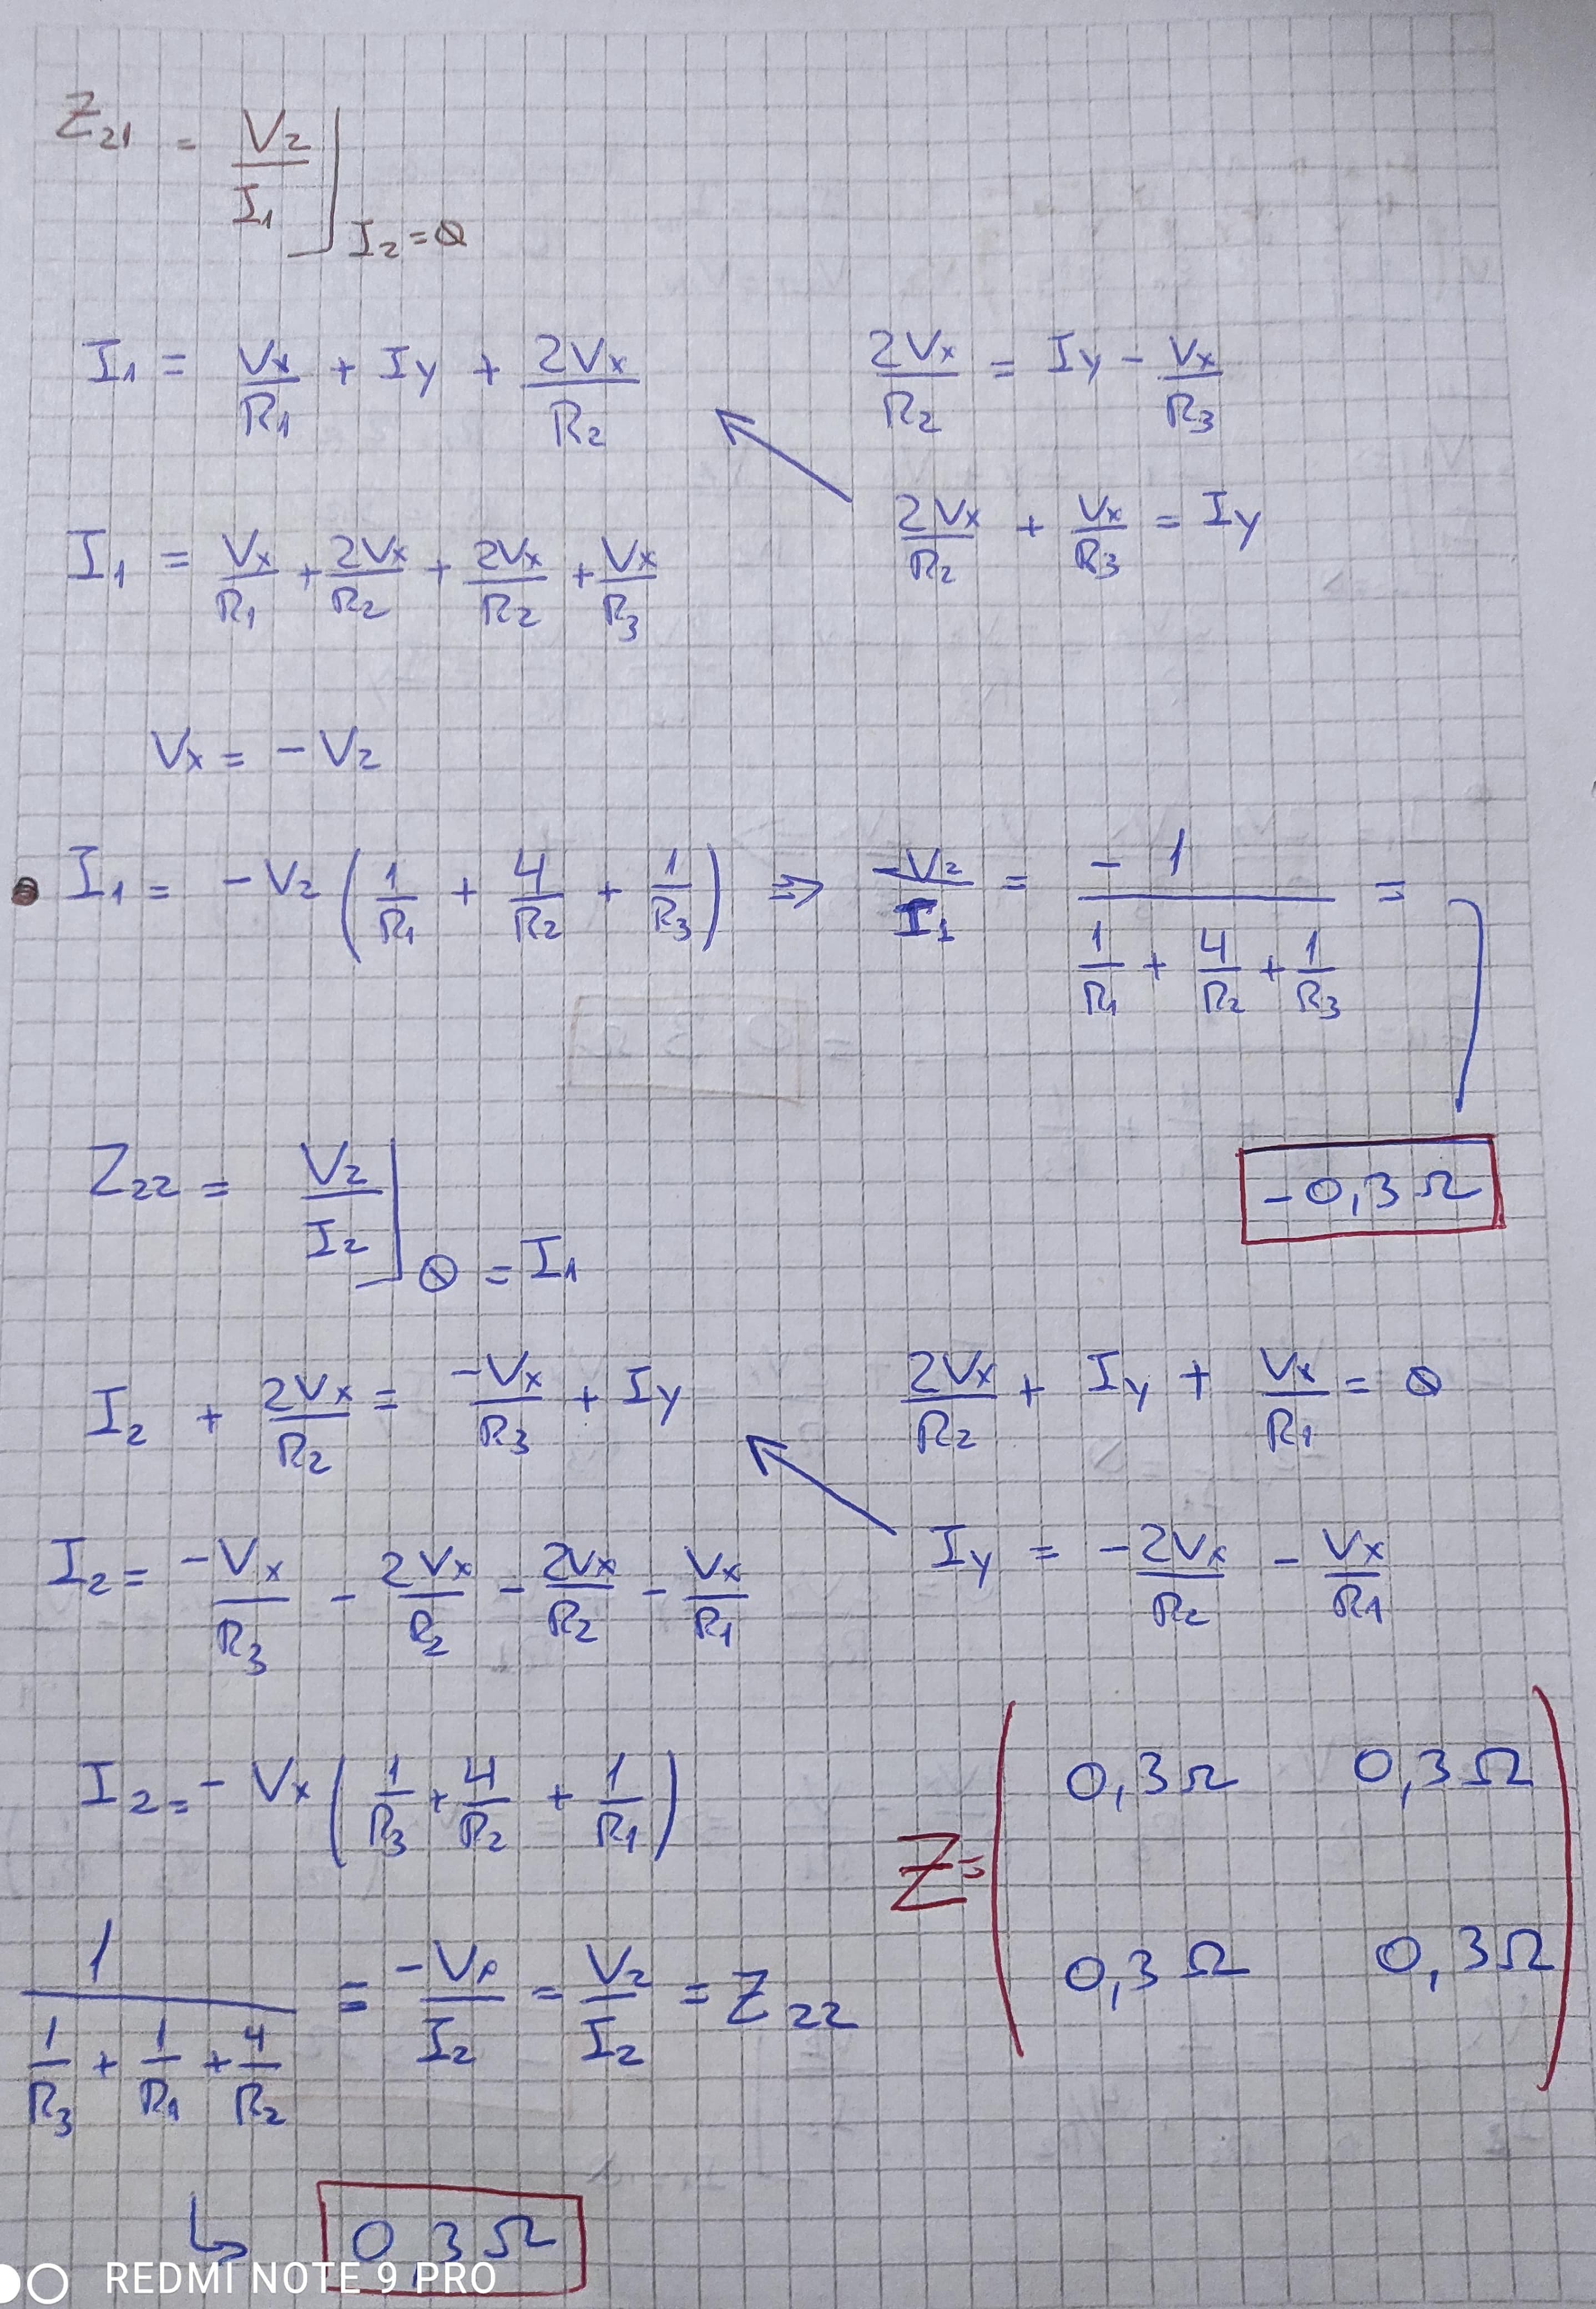 Z21 = V2/I1 | I2=0
I1 = Vx/R1 + Iy + 2Vx/R2
2Vx/R2 = Iy - Vx/R3
2Vx/R2 + Vx/R3 = Iy
I1 = Vx/R1 + 2Vx/R2 + 2Vx/R2 + Vx/R3
Vx = - V2
I1 = - V2 (1/R1 + 4/R2 + 1/R3) => -V2/I1 = - 1/(1/R1 + 4/R2 + 1/R3) =
-0,3 Ω
Z22 = V2/I2 | 0 = I1
I2 + 2Vx/R2 = -Vx/R3 + Iy
2Vx/R2 + Iy + Vx/R1 = 0
I2 = -Vx/R3 - 2Vx/R2 - 2Vx/R2 - Vx/R1
Iy = -2Vx/R2 - Vx/R1
I2 = - Vx (1/R3 + 4/R2 + 1/R1)
Z = ( 0,3Ω 0,3Ω
0,3Ω 0,3Ω )
1/(1/R3 + 1/R1 + 4/R2) = -Vx/I2 = V2/I2 = Z22
0,3Ω
REDMI NOTE 9 PRO